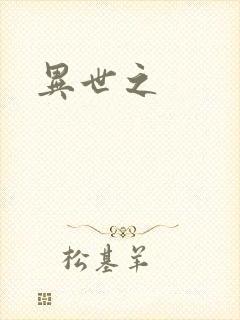 異世之
松基羊